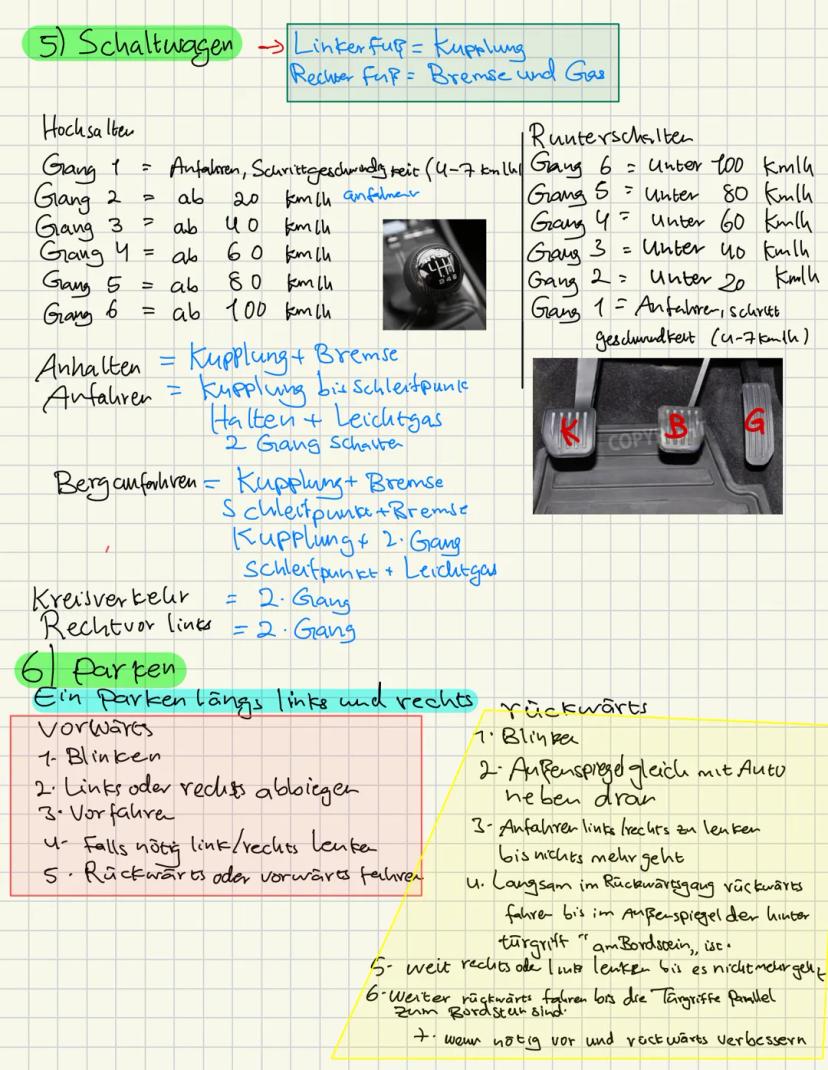 5) Schaltwagen → Linker Fuß = Kupplung
Rechter Fuß = Bremse und Gas
Hochsalten
Gang 1 = Anfahren, Schrittgeschwindigkeit (4-7 km/h)
Gang 2 = ab 20 km/h anfahren
Gang 3 = ab 40 km/h
Gang 4 = ab 60 km/h
Gang 5 = ab 80 km/h
Gang 6 = ab 100 km/h
Runterschalten
Gang 6 = Unter 100 km/h
Gang 5 = Unter 80 km/h
Gang 4 = Unter 60 km/h
Gang 3 = Unter 40 km/h
Gang 2 = Unter 20 km/h
Gang 1 = Anfahren, schritt
geschwindkeit (4-7km/h)
Anhalten = Kupplung + Bremse
Anfahren = Kupplung bis Schleifpunk
Halten + Leichtgas
2 Gang Schalten
K B G
COPY
Berganfahren = Kupplung + Bremse
Schleifpunkt + Bremse
Kupplung + 2. Gang
Schleifpunkt + Leichtgas
Kreisverkehr = 2. Gang
Rechtvor links = 2. Gang
6) Parken
Ein parken längs links und rechts
Vorwärts
1- Blinken
2. Links oder rechts abbiegen
3. Vorfahren
4- Falls nötig link/rechts lenken
5. Rückwärts oder vorwärts fahren
rückwärts
1. Blinken
2- Außenspiegel gleich mit Auto
neben dran
3- Anfahren links/rechts zu lenken
bis nichts mehr geht
4. Langsam im Rückwärtsgang rückwärts
fahren bis im Außenspiegel der hinter
türgriff "am Bordstein„ ist.
5- weit rechts oder links lenken bis es nicht mehr geht
6- Weiter rückwärts fahren bis die Türgriffe Parallel
zum Bordstein sind.
7. wenn nötig vor und rückwärts verbessern